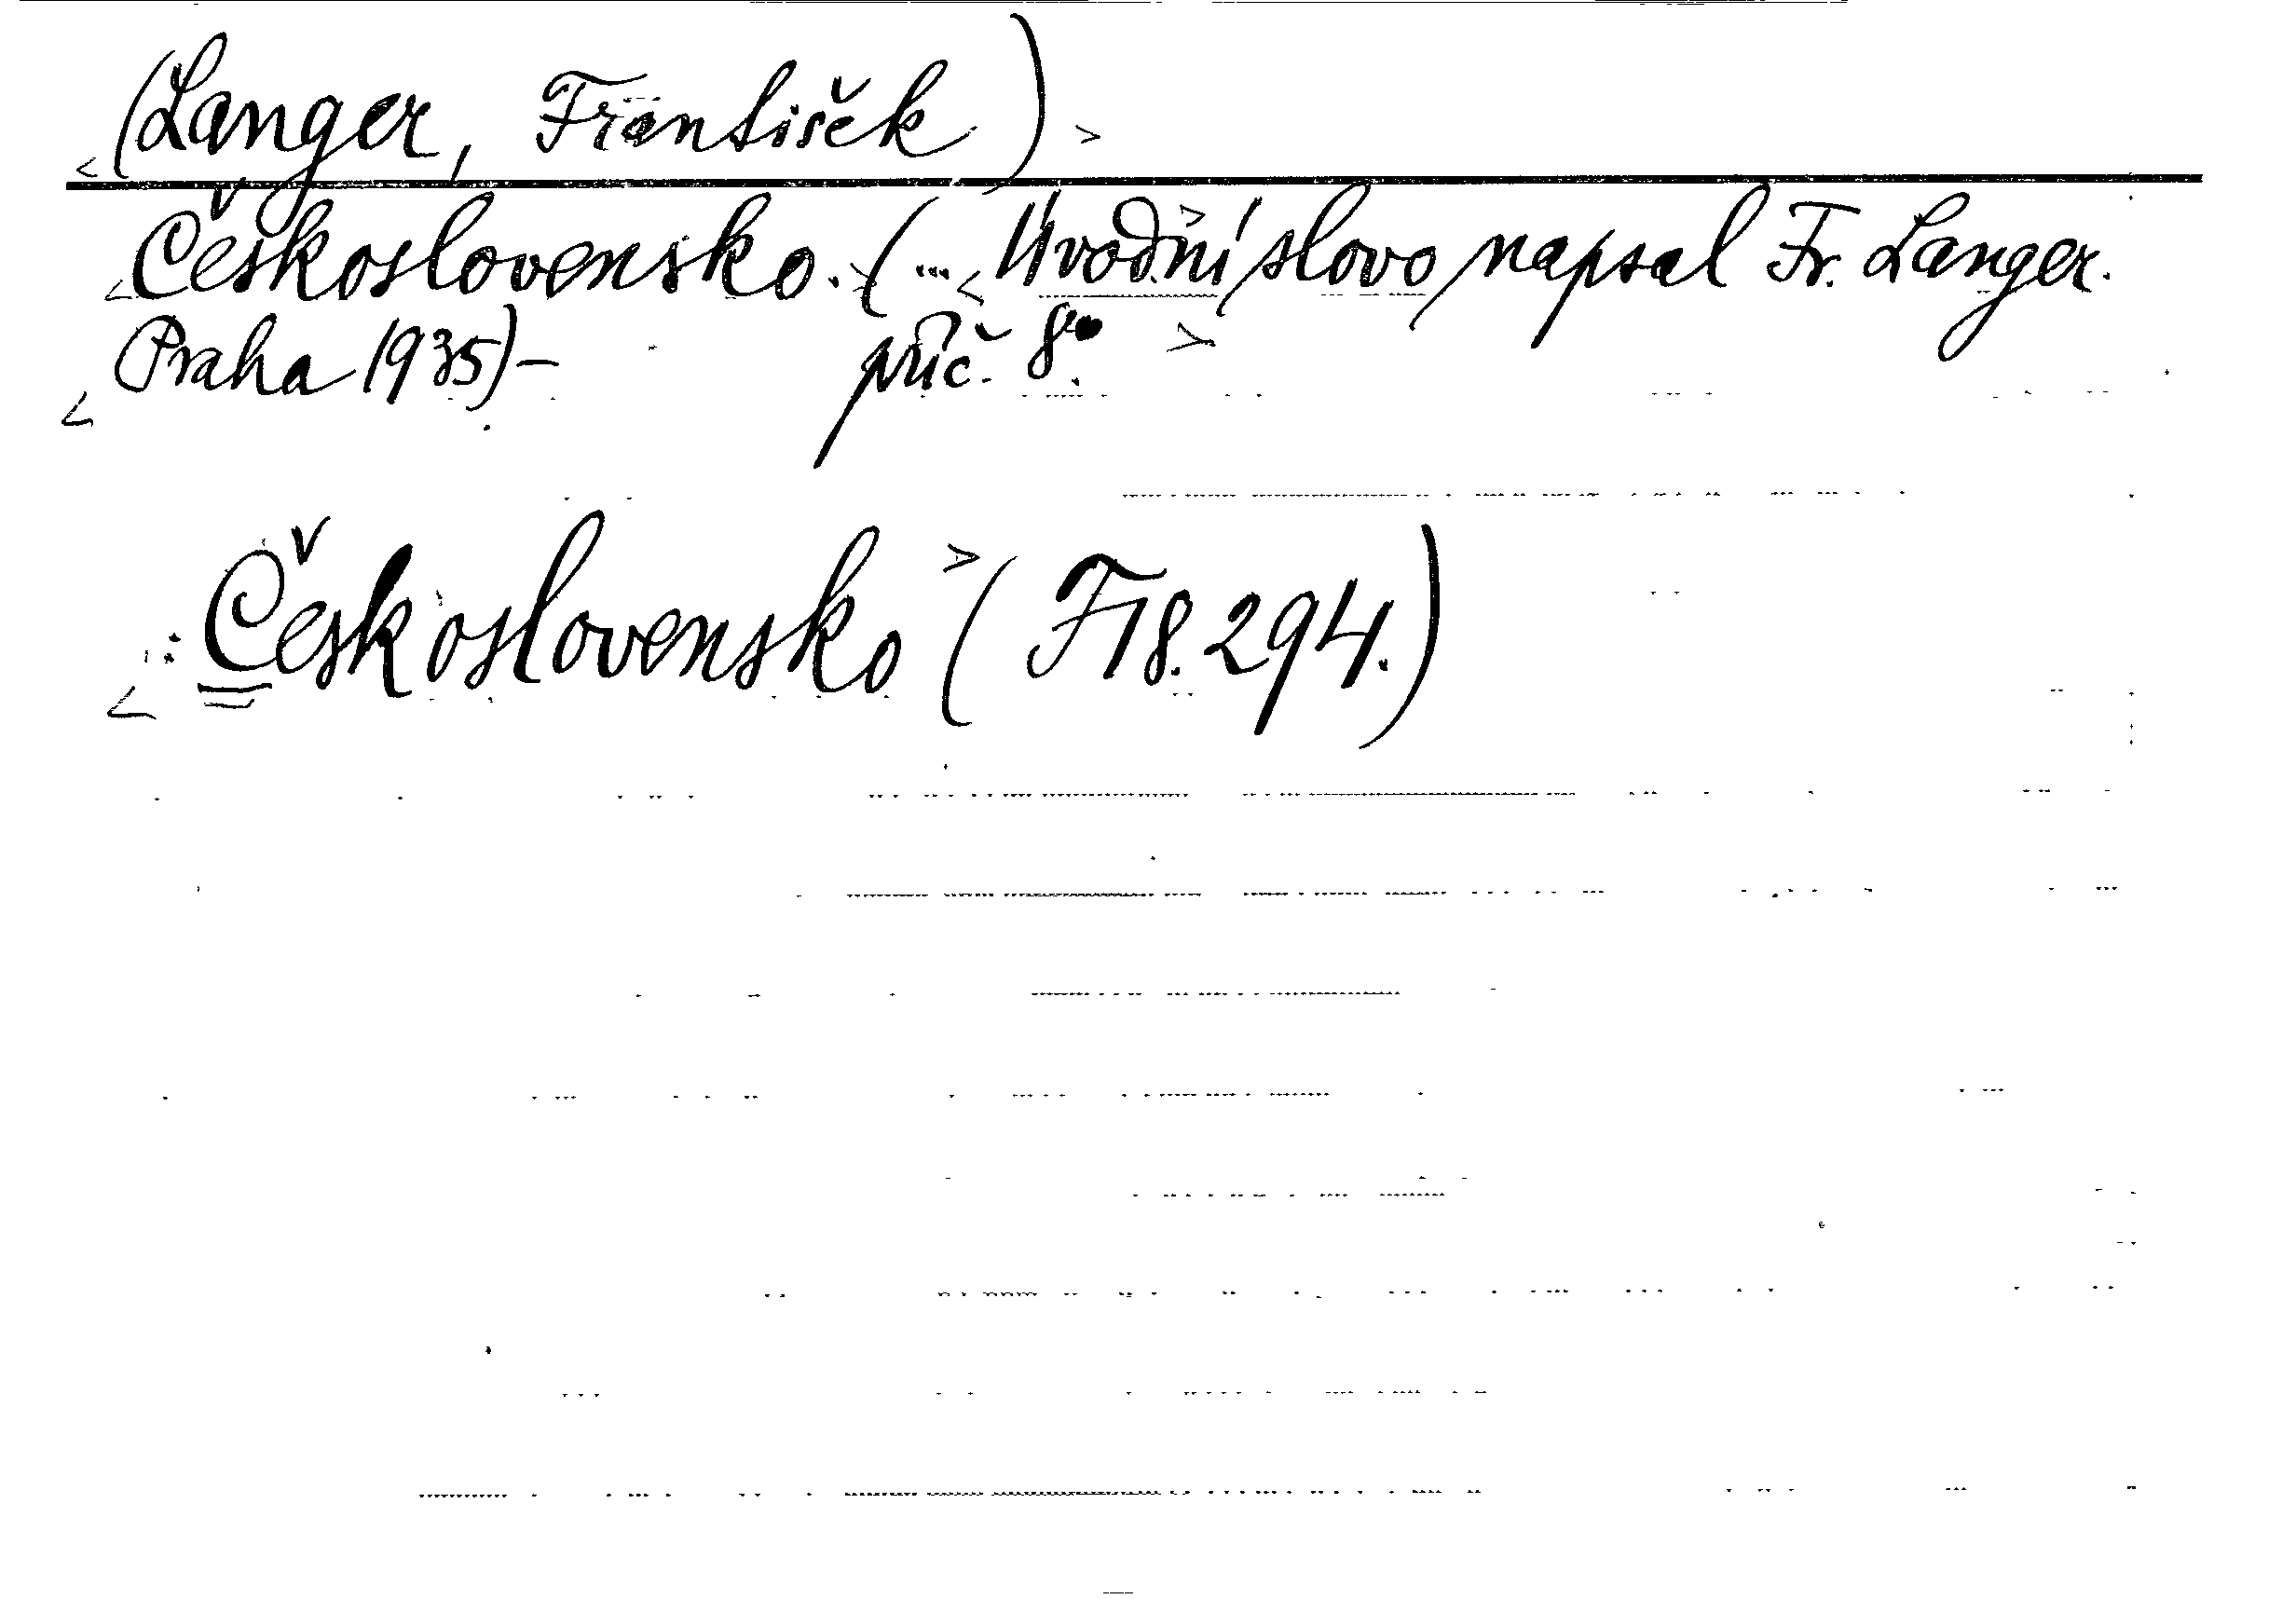 (Langer, František)
Československo. (... Úvodní slovo napsal Fr. Langer.
Praha 1935) – příč. 8°.
Československo (F 18.294.)